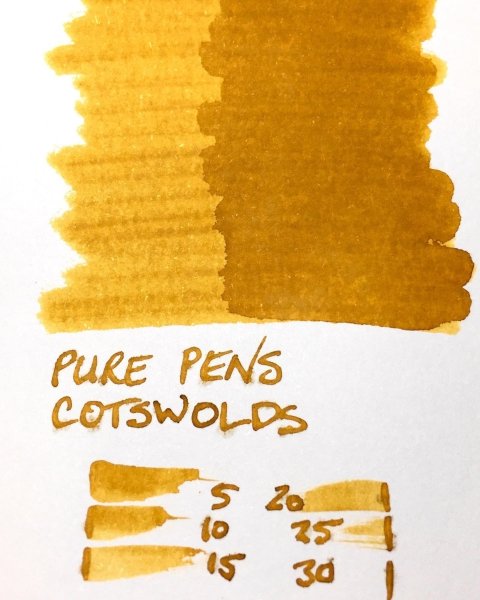 PURE PENS
COTSWOLDS
5 20
10 25
15 30